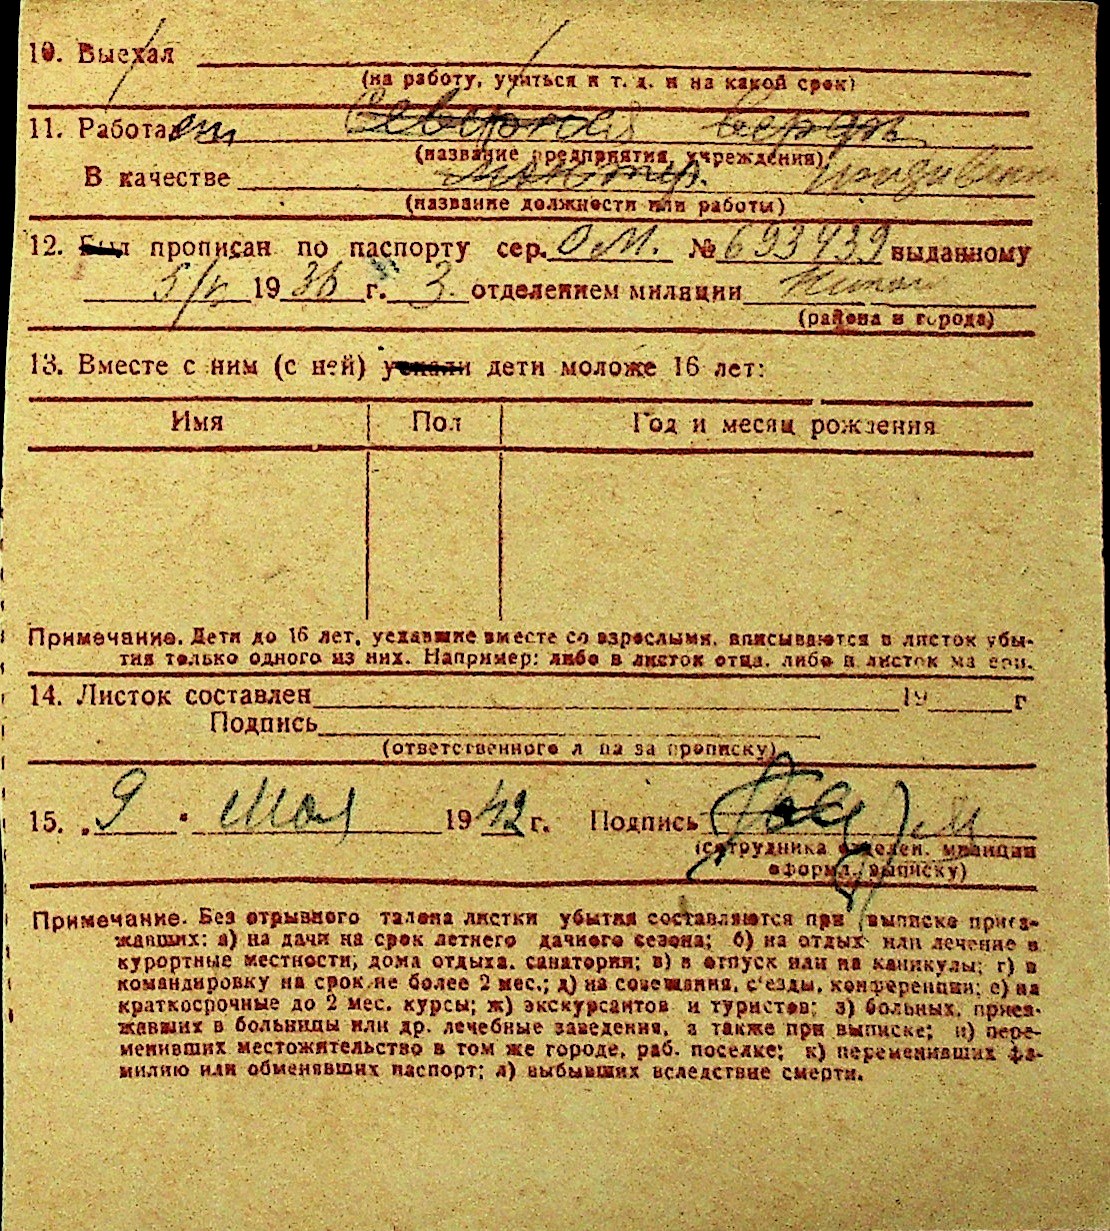 10. Выехал
(на работу, учиться и т. д. и на какой срок)
11. Работает Северная верфь
(название предприятия, учреждения)
В качестве
(название должности или работы)
12. Был прописан по паспорту сер. ОМ. № 693939 выданному
5/V 1936 г. 3. отделением милиции
(района и города)
13. Вместе с ним (с ней) уехали дети моложе 16 лет:
Имя Пол Год и месяц рождения
Примечание. Дети до 16 лет, уехавшие вместе со взрослыми, вписываются в листок убы-
тия только одного из них. Например: либо в листок отца, либо в листок матери.
14. Листок составлен 19 г
Подпись
(ответственного лица за прописку)
15. „9 " мая 1942 г. Подпись
(сотрудника отделен. милиции
оформл. выписку)
Примечание. Без отрывного талона листки убытия составляются при выписке приез-
жавших: а) на дачи на срок летнего дачного сезона; б) на отдых или лечение в
курортные местности, дома отдыха, санатории; в) в отпуск или на каникулы; г) в
командировку на срок не более 2 мес.; д) на совещания, с'езды, конференции; е) на
краткосрочные до 2 мес. курсы; ж) экскурсантов и туристов; з) больных, приез-
жавших в больницы или др. лечебные заведения, а также при выписке; и) пере-
менивших местожительство в том же городе, раб. поселке; к) переменивших фа-
милию или обменявших паспорт; л) выбывших вследствие смерти.